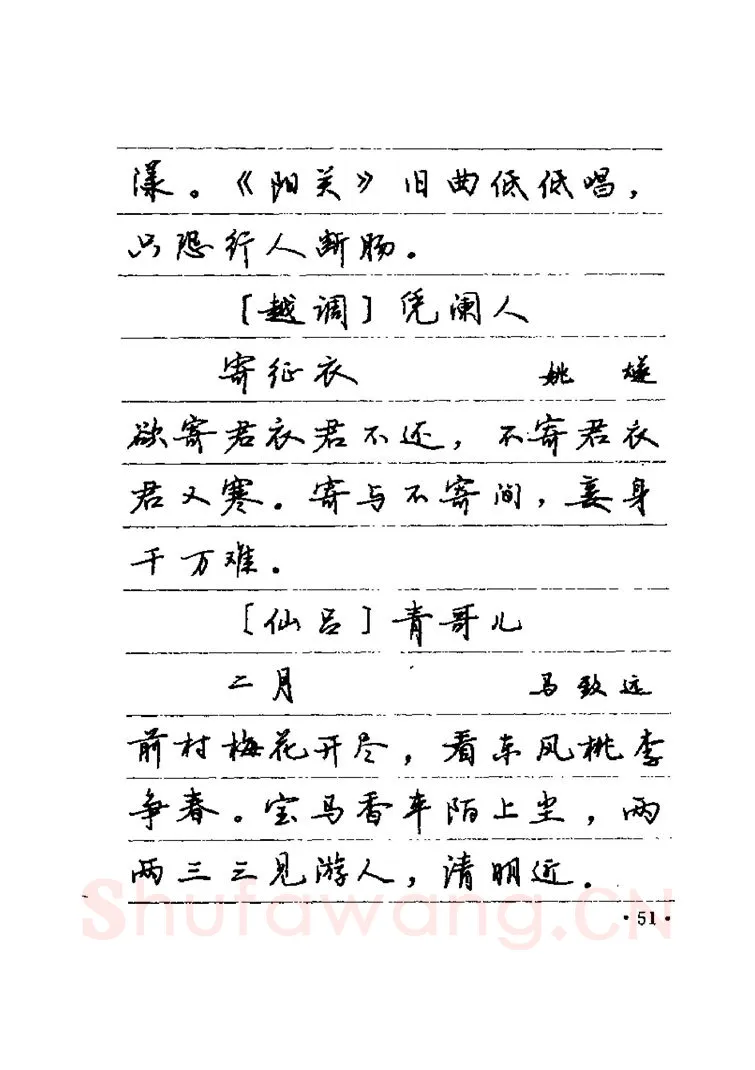 漾。《阳关》旧曲低低唱，
只恐行人断肠。
［越调］凭阑人
寄征衣 姚燧
欲寄君衣君不还，不寄君衣
君又寒。寄与不寄间，妾身
千万难。
［仙吕］青哥儿
二月 马致远
前村梅花开尽，看东风桃李
争春。宝马香车陌上尘，两
两三三见游人，清明近．
Shufawang.CN
·51·